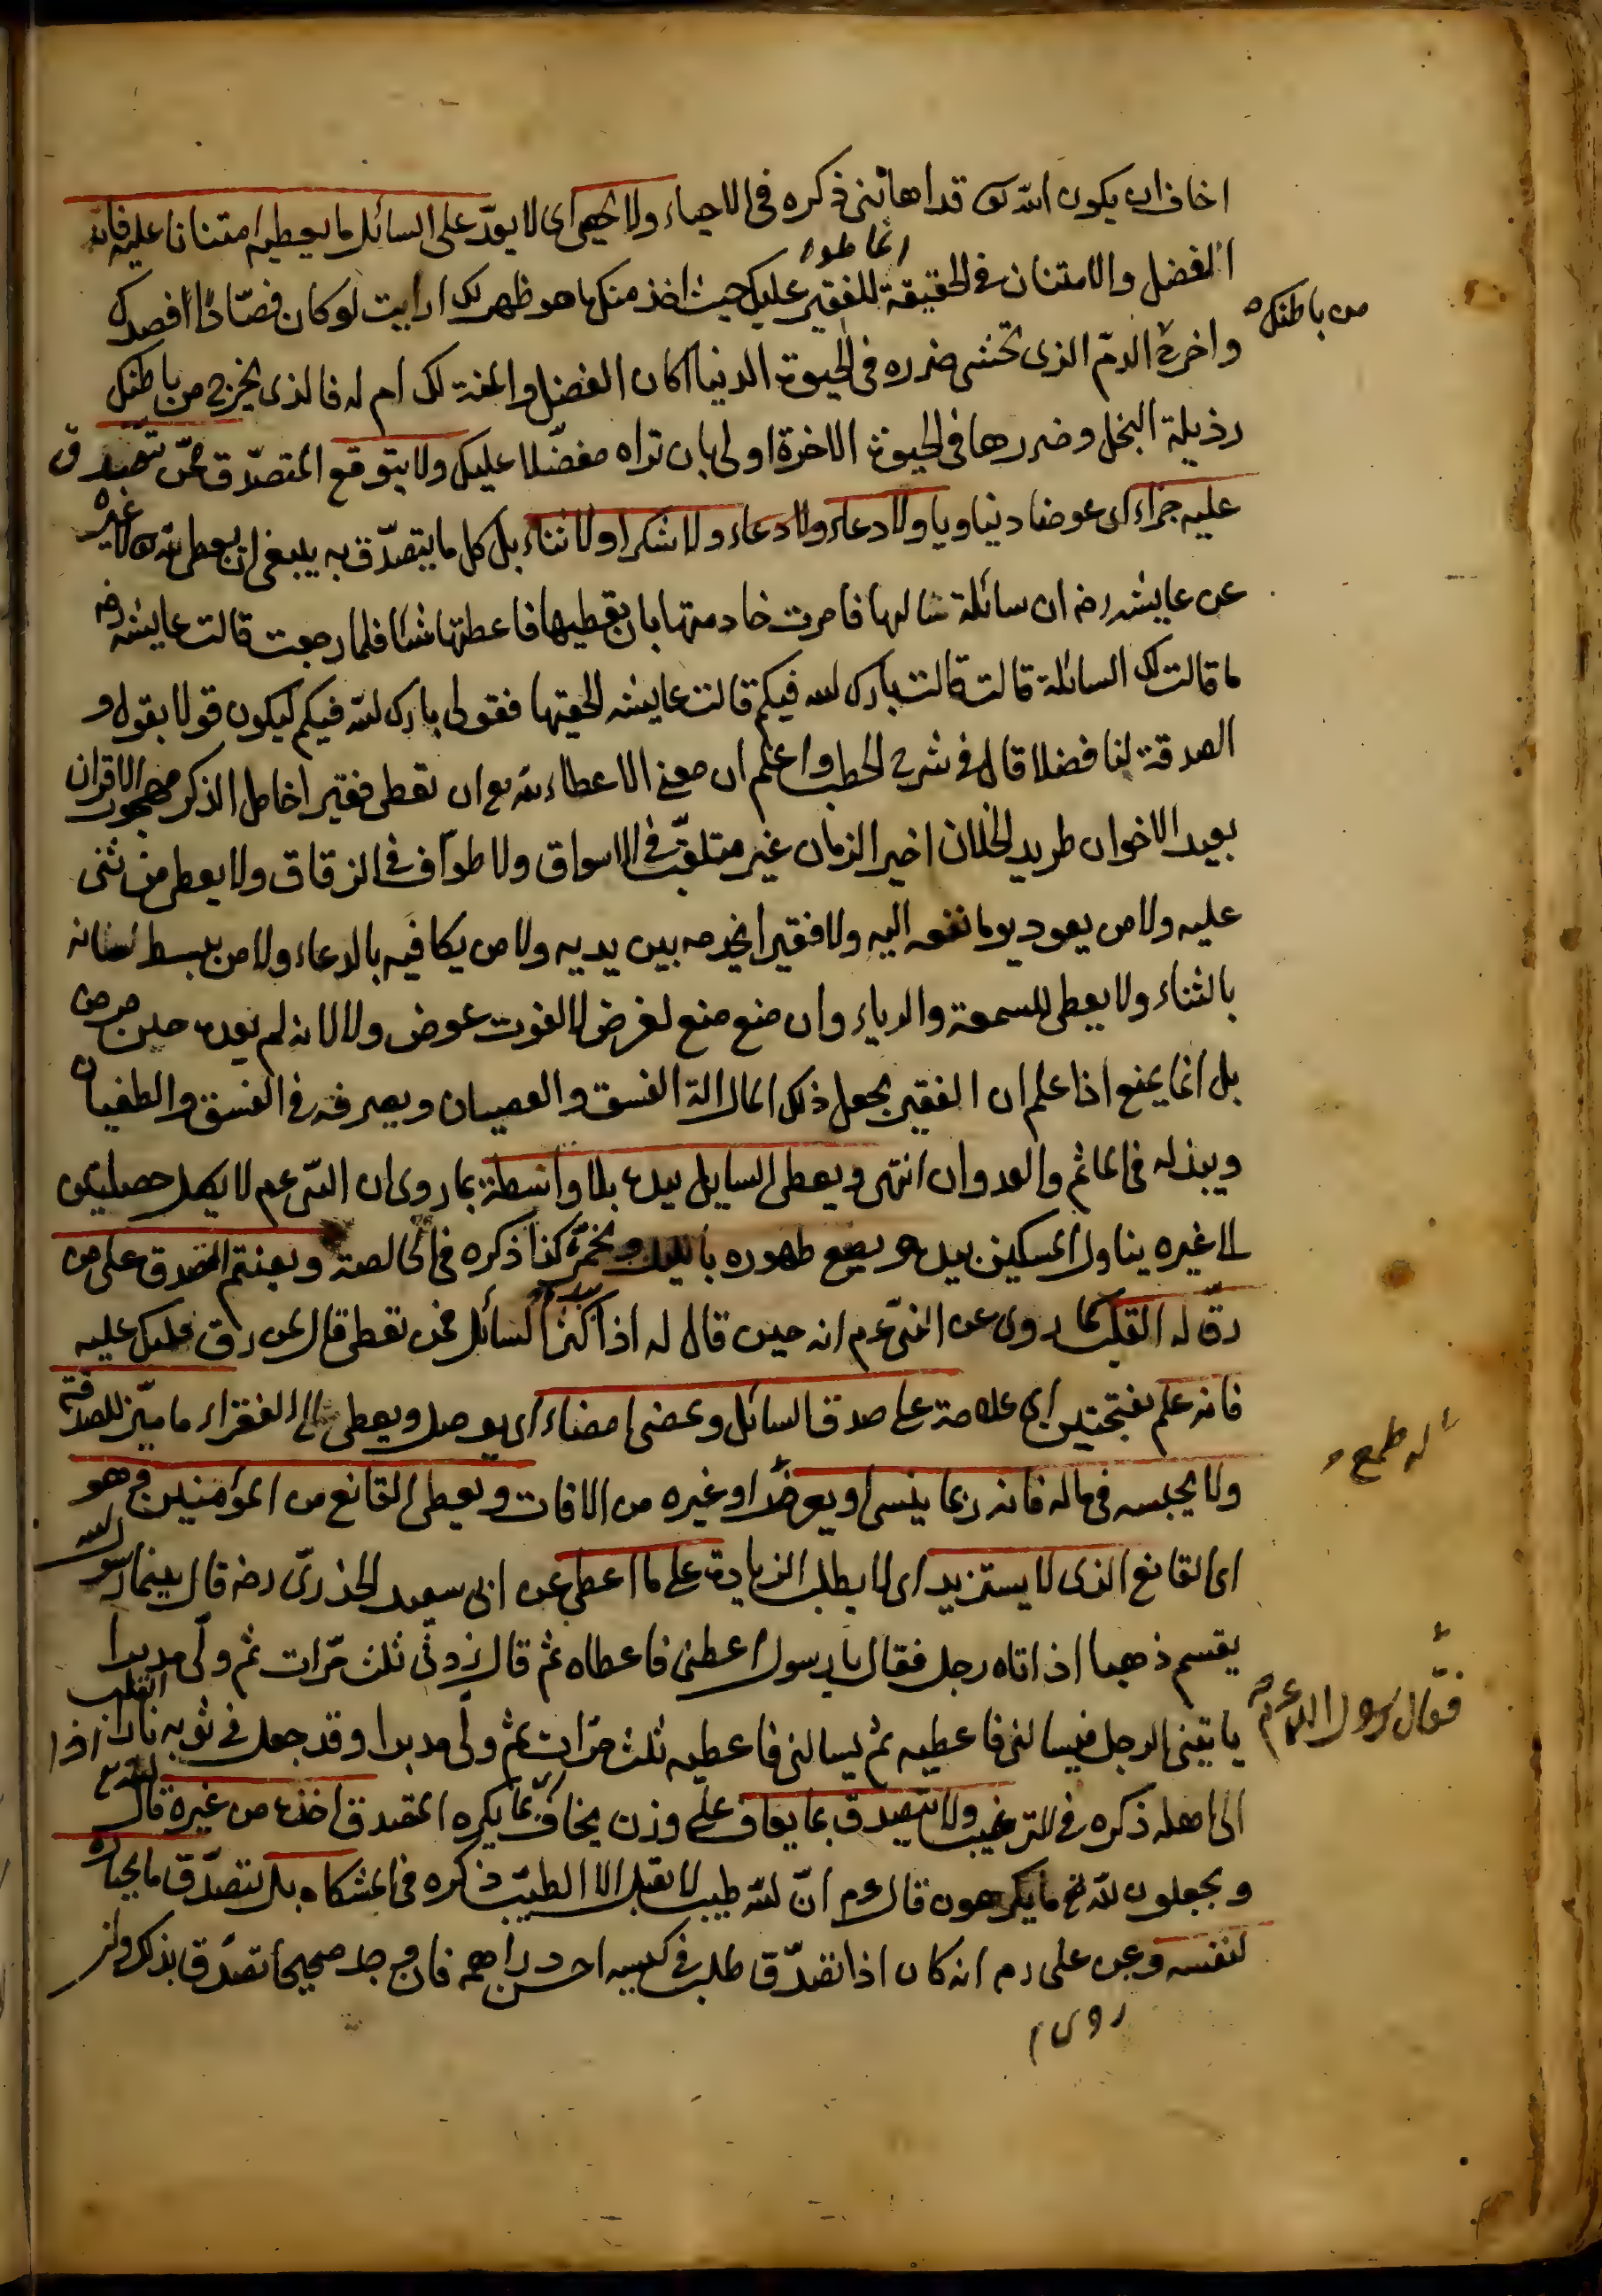 اخاف ان يكون الله تعا قد اهانني ذكره في الاحياء ولا يحصي اي لا يعدّ على السائل ما يعطيه امتنانا عليه فانه
الفضل والامتنان في الحقيقة للفقير عليك حيث اخذ منك ما هو طهر لك ارايت لو كان فصّادا افصدك
من باطنك
واخرج الدمّ الذي تخشى ضرره في الحيوة الدنيا اكان الفضل والمنة لك ام له فالذي يخرج من باطنك
رذيلة البخل وضررها في الحيوة الاخرة اولى بان تراه مفضّلا عليك ولا يتوقع المتصدّق ممّن تصدق
عليه جزاء اي عوضا دنياويا ولا دعاء ولا دعاء ولا شكرا ولا ثناء بل كل ما يتصدّق به ينبغي ان يعطي لله لا لغيره
عن عايشه رضه ان سائلة سالها فامرت خادمتها بان تعطيها فاعطتها شيئا فلما رجعت قالت عايشه رضه
ما قالت لك السائلة قالت قالت بارك الله فيكم قالت عايشه الحقيها فقولي بارك الله فيكم ليكون قولا بقول و
الصدقة لنا فضلا قال في شرح الخطب واعلم ان معنى الاعطاء لله تع ان تعطي فقيرا خامل الذكر مهجور الاقران
بعيد الاخوان طريد الخلان اخير الزمان غير متقلّب في الاسواق ولا طوّاف في الزقاق ولا يعطي من يثني
عليه ولا من يعود يوما نفعه اليه ولا فقيرا يخدمه بين يديه ولا من يكافيه بالدعاء ولا من يبسط لسانه
بالثناء ولا يعطي للسمعة والرياء وان منع منع لغرض لا لفوت عوض ولا لانه لم يعده حين مرض
بل انما يمنع اذا علم ان الفقير يجعل ذلك المال الة الفسق والعصيان ويصرفه في الفسق والطغيان
ويبذله في الماثم والعدوان انتهى ويعطي السايل بيده بلا واسطة بما روي ان النبي عم لا يكل خصلتين
الى غيره يناول المسكين بيده ويضع طهوره بالليل ويخمّره كذا ذكره في الخالصة ويغتنم التصدق على من
رقّ له القلب كما روي عن النبي عم انه حين قال له اذا كثر السائل فمن نعطي قال من رق قلبك عليه
فانه علم بفتحتين اي علامة على صدق السائل ويمضي امضاء اي يوصل ويعطي الى الفقراء ما ميّز للصدقة
اله طمع
ولا يحبسه في ماله فانه ربما ينسى او يعرضه او غيره من الافات ويعطي القانع من المؤمنين وهو
اي القانع الذي لا يستزيد اي لا يطلب الزيادة على ما اعطي عن ابي سعيد الخدريّ رضه قال بينما رسول الله
يقسم ذهبا اذ اتاه رجل فقال يا رسول اعطني فاعطاه ثم قال زدني ثلث مرّات ثم ولّى مدبرا
فقال رسول الله عم
ياتيني الرجل فيسالني فاعطيه ثم يسالني فاعطيه ثلث مرّات ثم ولّى مدبرا وقد جعل في ثوبه نارا اذا انقلب
الى اهله ذكره في الترغيب ولا يتصدق بما يعاف على وزن يخاف اي بما يكره المتصدق اخذه من غيره قال الله تع
ويجعلون لله تع ما يكرهون قال عم انّ لله طيب لا يقبل الا الطيّب ذكره في المشكاه بل يتصدّق ما يختاره
لنفسه وعن علي رم انه كان اذا تصدّق طلب في كيسه احسن دراهمه فان وجد صحيحا تصدّق بذلك وان
روي